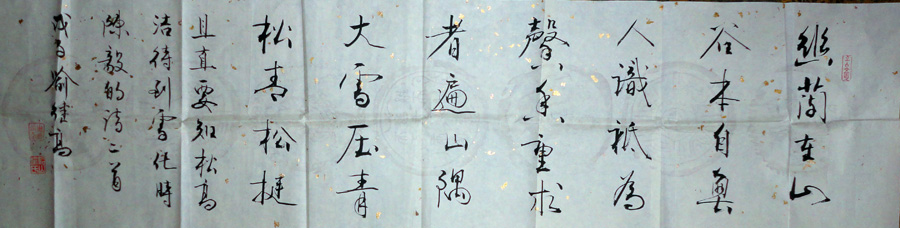 幽蘭在山
谷本自無
人識祗為
馨香重求
者遍山隅
大雪压青
松青松挺
且直要知松高
洁待到雪化時
陳毅的诗二首
戊子喻继高